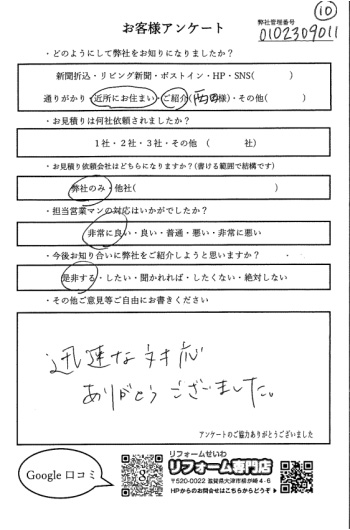 ⑩
お客様アンケート
弊社管理番号
0102309011
・どのようにして弊社をお知りになりましたか？
新聞折込・リビング新聞・ポストイン・HP・SNS(　　　)
通りがかり・近所にお住まい・ご紹介(　　様)・その他(　　　)
・お見積りは何社依頼されましたか？
1社・2社・3社・その他（　　　社）
・お見積り依頼会社はどちらになりますか？(書ける範囲で結構です)
弊社のみ・他社(　　　　　　　　　)
・担当営業マンの対応はいかがでしたか？
非常に良い・良い・普通・悪い・非常に悪い
・今後お知り合いに弊社をご紹介しようと思いますか？
是非する・したい・聞かれれば・したくない・絶対しない
・その他ご意見等ご自由にお書きください
迅速な対応
ありがとうございました。
アンケートのご協力ありがとうございました
Google 口コミ
g
リフォームせいわ
リフォーム専門店
〒520-0022 滋賀県大津市柳が崎4-6
HPからのお問合せはこちらからどうぞ▶